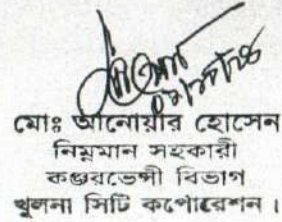 মোঃ আনোয়ার হোসেন
নিম্নমান সহকারী
কঞ্জরভেন্সী বিভাগ
খুলনা সিটি কর্পোরেশন।